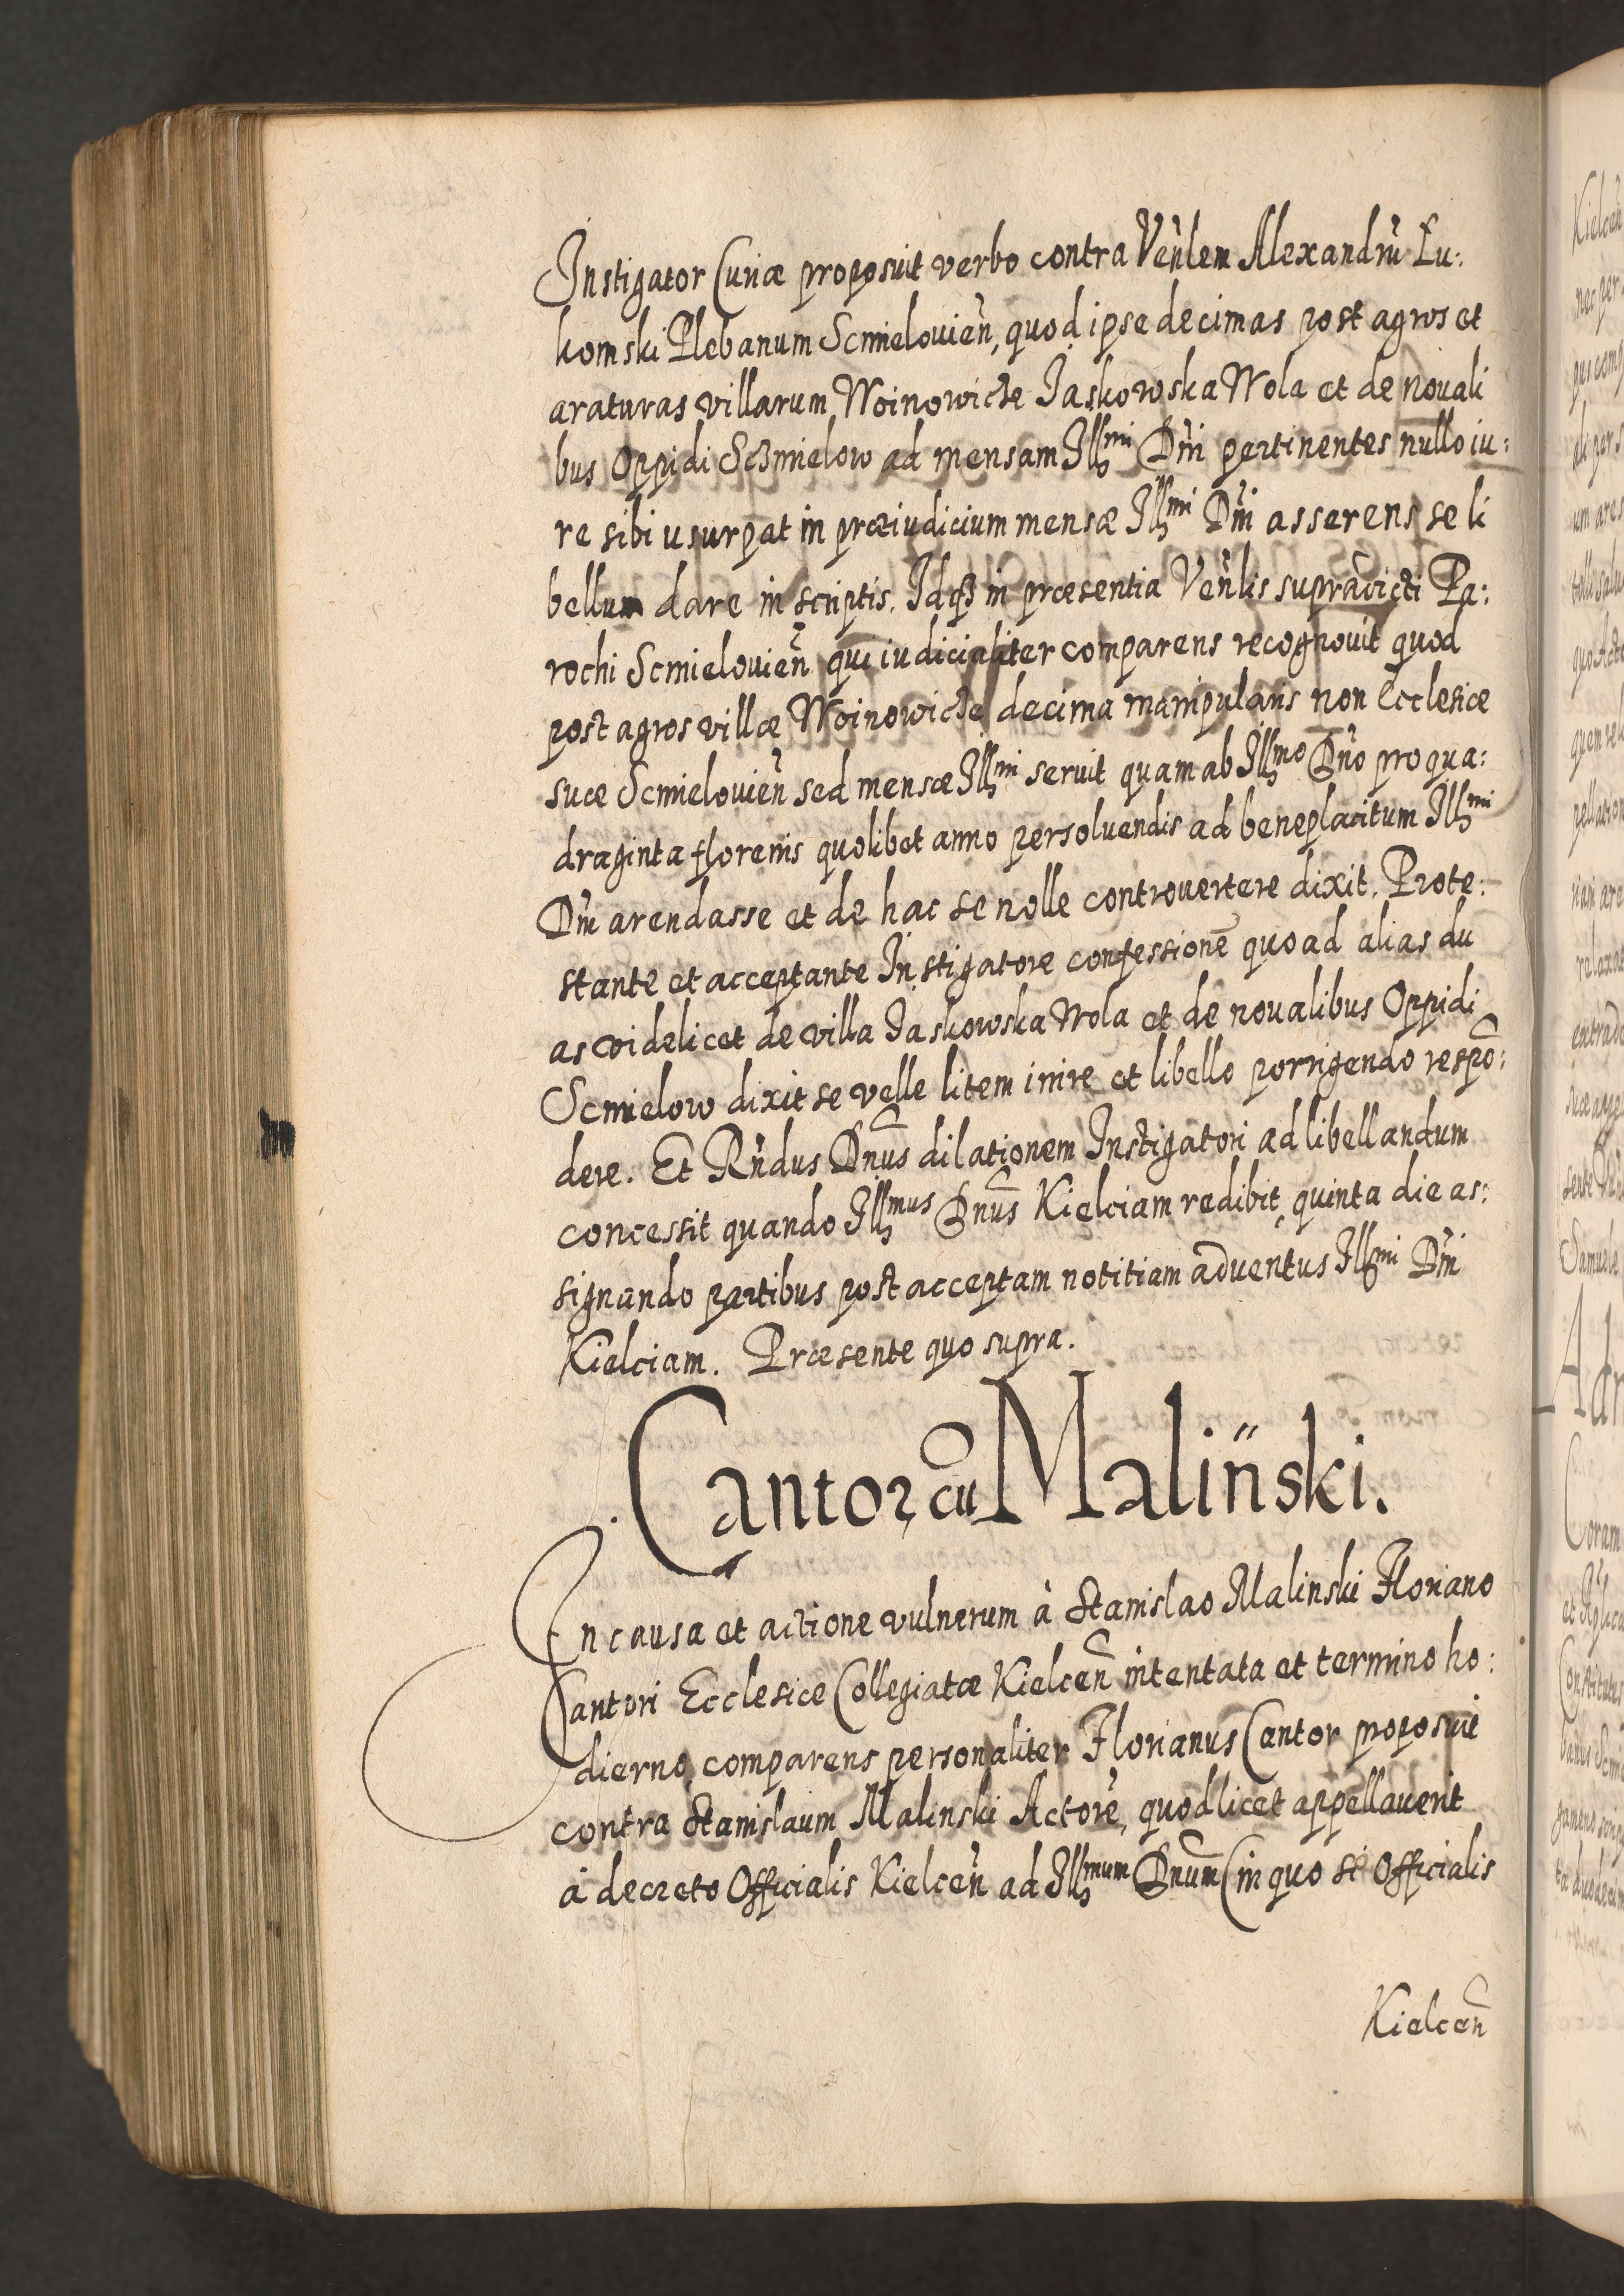 Instigator Curiæ proposuit verbo contra Veñlem Alexandrũ Łu:
komski Plebanum Scmielouieñ, quod ipse decimas post agros et
araturas villarum Woinowicze Jaskowska Wola et de nouali
bus Oppidi Sczmielow ad mensam Illmi Dñi pertinentes nullo iu:
re sibi usurpat in præiudicium mensæ Illmi Dñi asserens se li
bellum dare in scriptis. Idqȝ in præsentia Veñlis supradicti Pa:
rochi Scmielouieñ qui iudicialiter comparens recognouit quod
post agros villæ Woinowicze decima manipularis non Ecclesiæ
suæ Scmielouieñ sed mensæ Illmi seruit quam ab Illmo Dño pro qua:
draginta florenis quolibet anno persoluendis ad beneplacitum Illmi
Dñi arendasse et de hac se nolle controuertere dixit. Prote:
stante et acceptante Instigatore confessionē quoad alias du
as videlicet de villa Jaskowska Wola et de noualibus Oppidi
Scmielow dixit se velle litem inire et libello porrigendo respō:
dere. Et Rñdus Dñus dilationem Instigatori ad libellandum
concessit quando Illmus Dñus Kielciam redibit, quinta die as:
signando partibus post acceptam notitiam aduentus Illmi Dñi
Kielciam. Præsente quo supra.
Cantor cũ Maliński.
In causa et actione vulnerum à Stanislao Malinski Floriano
Cantori Ecclesiæ Collegiatæ Kielceñ intentata et termino ho:
dierno, comparens personaliter Florianus Cantor proposuit
contra Stanislaum Malinski Actorē, quod licet appellauerit
à decreto Officialis Kielceñ ad Illmum Dñum (in quo se Officialis
Kielceñ